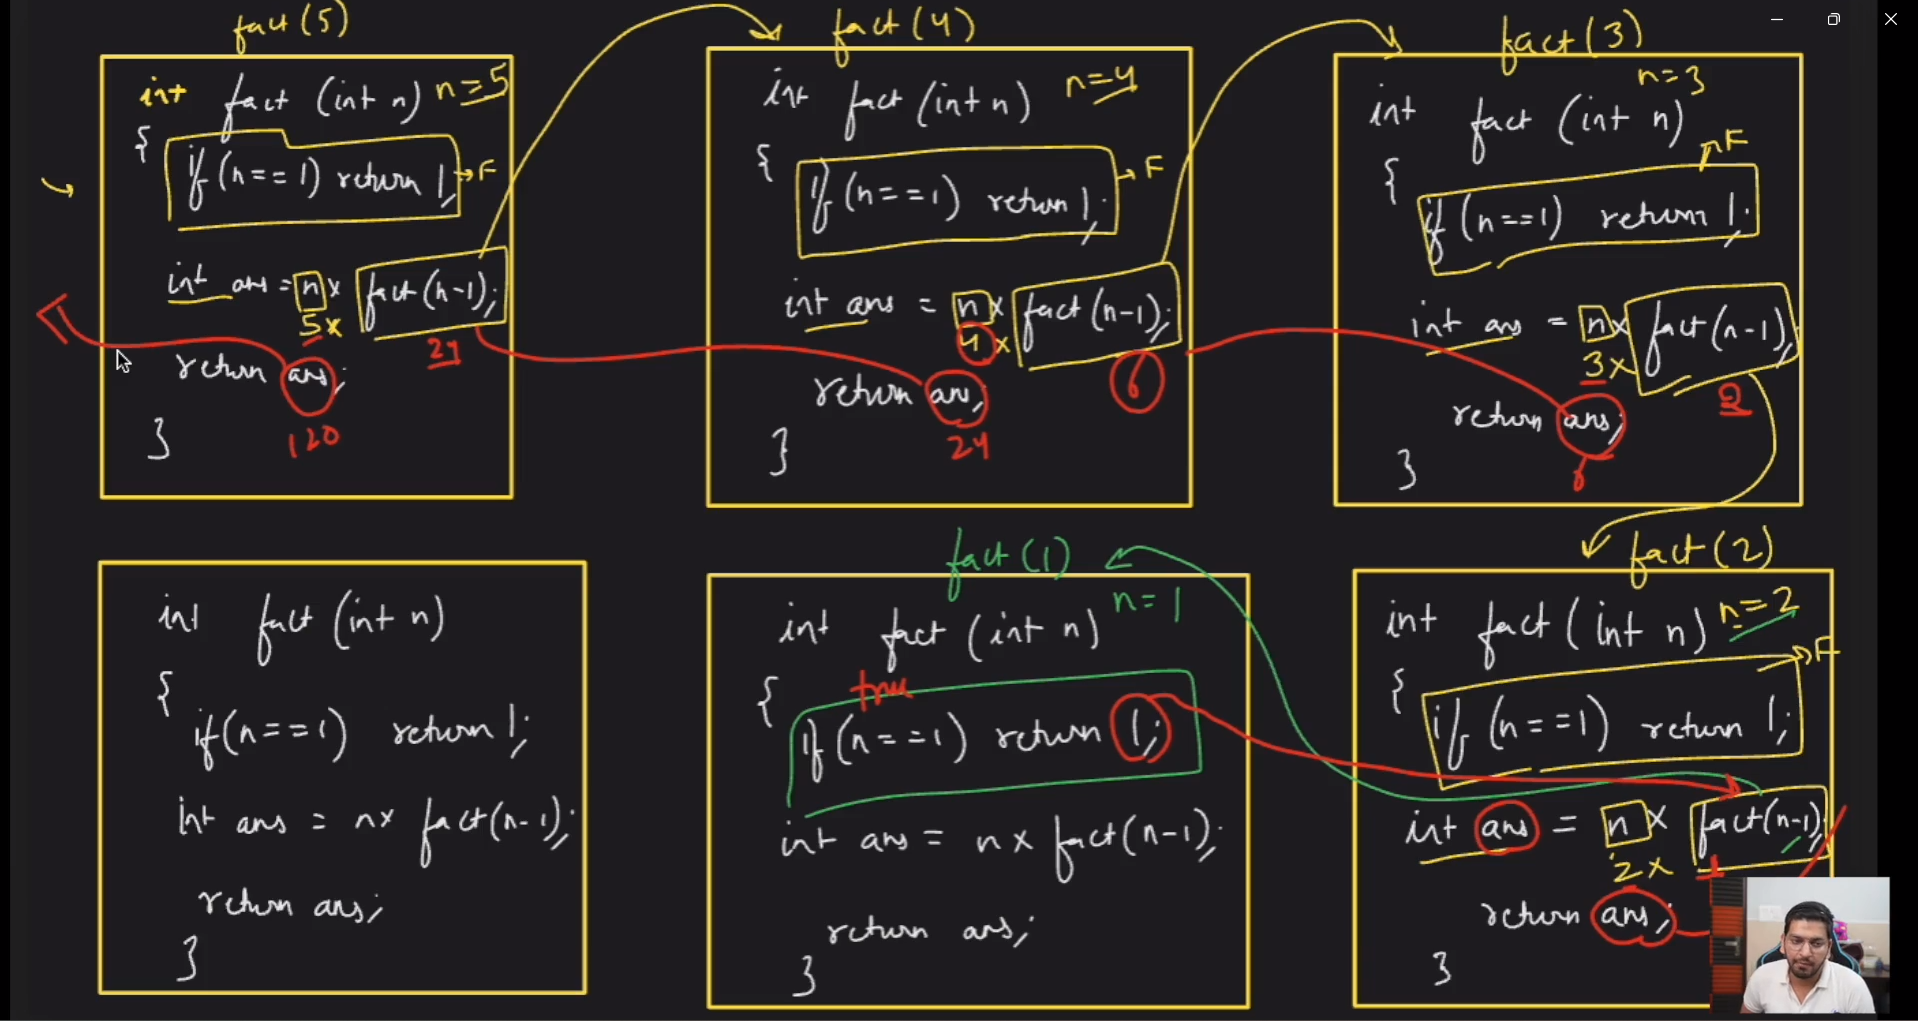 fact(5)
int fact (int n) n=5
{
if (n==1) return 1; → F
int ans = n x fact(n-1);
5 x 24
return ans;
120
}
fact(4)
int fact (int n) n=4
{
if (n==1) return 1; → F
int ans = n x fact(n-1);
4 x 6
return ans;
24
}
fact(3)
n=3
int fact (int n)
F
{
if (n==1) return 1;
int ans = n x fact(n-1);
3 x 2
return ans;
6
}
int fact (int n)
{
if(n==1) return 1;
int ans = n x fact(n-1);
return ans;
}
fact(1)
n=1
int fact (int n)
{
true
if (n==1) return 1;
int ans = n x fact(n-1);
return ans;
}
fact(2)
int fact (int n) n=2
F
{
if (n==1) return 1;
int ans = n x fact(n-1);
2 x 1
return ans;
}